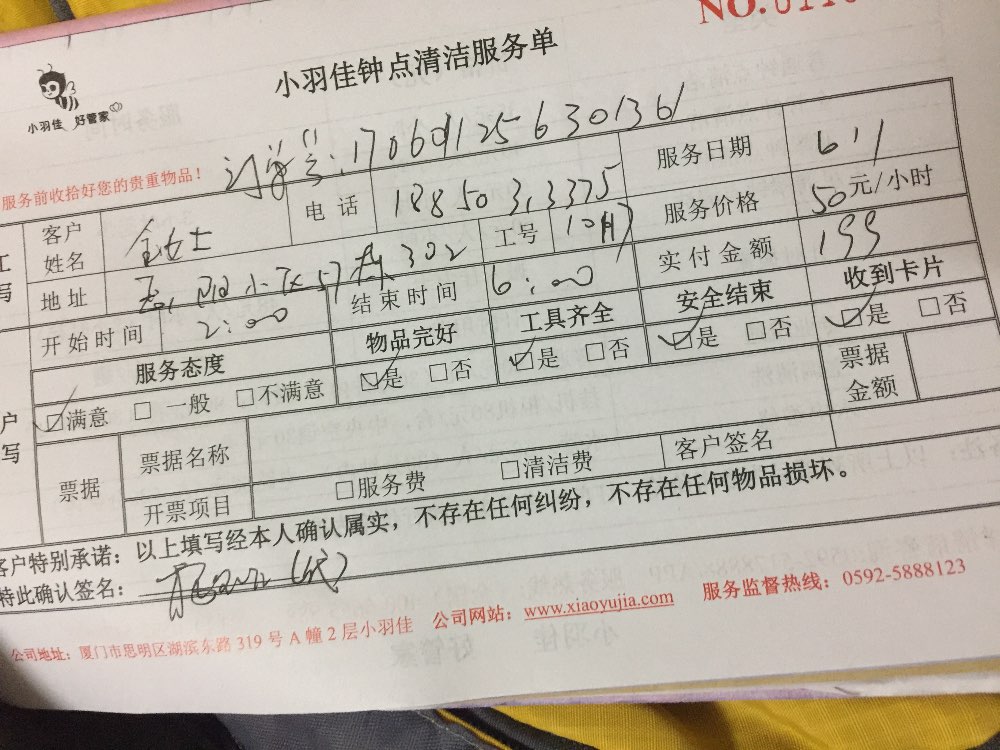 NO.011
小羽佳钟点清洁服务单
小羽佳 好管家
服务前收拾好您的贵重物品！
订单号:17060125630136
客户姓名 金女士 电话 1885033375 服务日期 6.1
地址 小区57栋302 工号 服务价格 50元/小时
开始时间 2:00 结束时间 6:00 实付金额 199
服务态度 物品完好 工具齐全 安全结束 收到卡片
☑满意 □一般 □不满意 ☑是 □否 ☑是 □否 ☑是 □否 ☑是 □否
票据 票据名称 票据金额
开票项目 □服务费 □清洁费 客户签名
客户特别承诺：以上填写经本人确认属实，不存在任何纠纷，不存在任何物品损坏。
特此确认签名： (代)
公司地址：厦门市思明区湖滨东路 319 号 A 幢 2 层小羽佳 公司网站：www.xiaoyujia.com 服务监督热线：0592-5888123